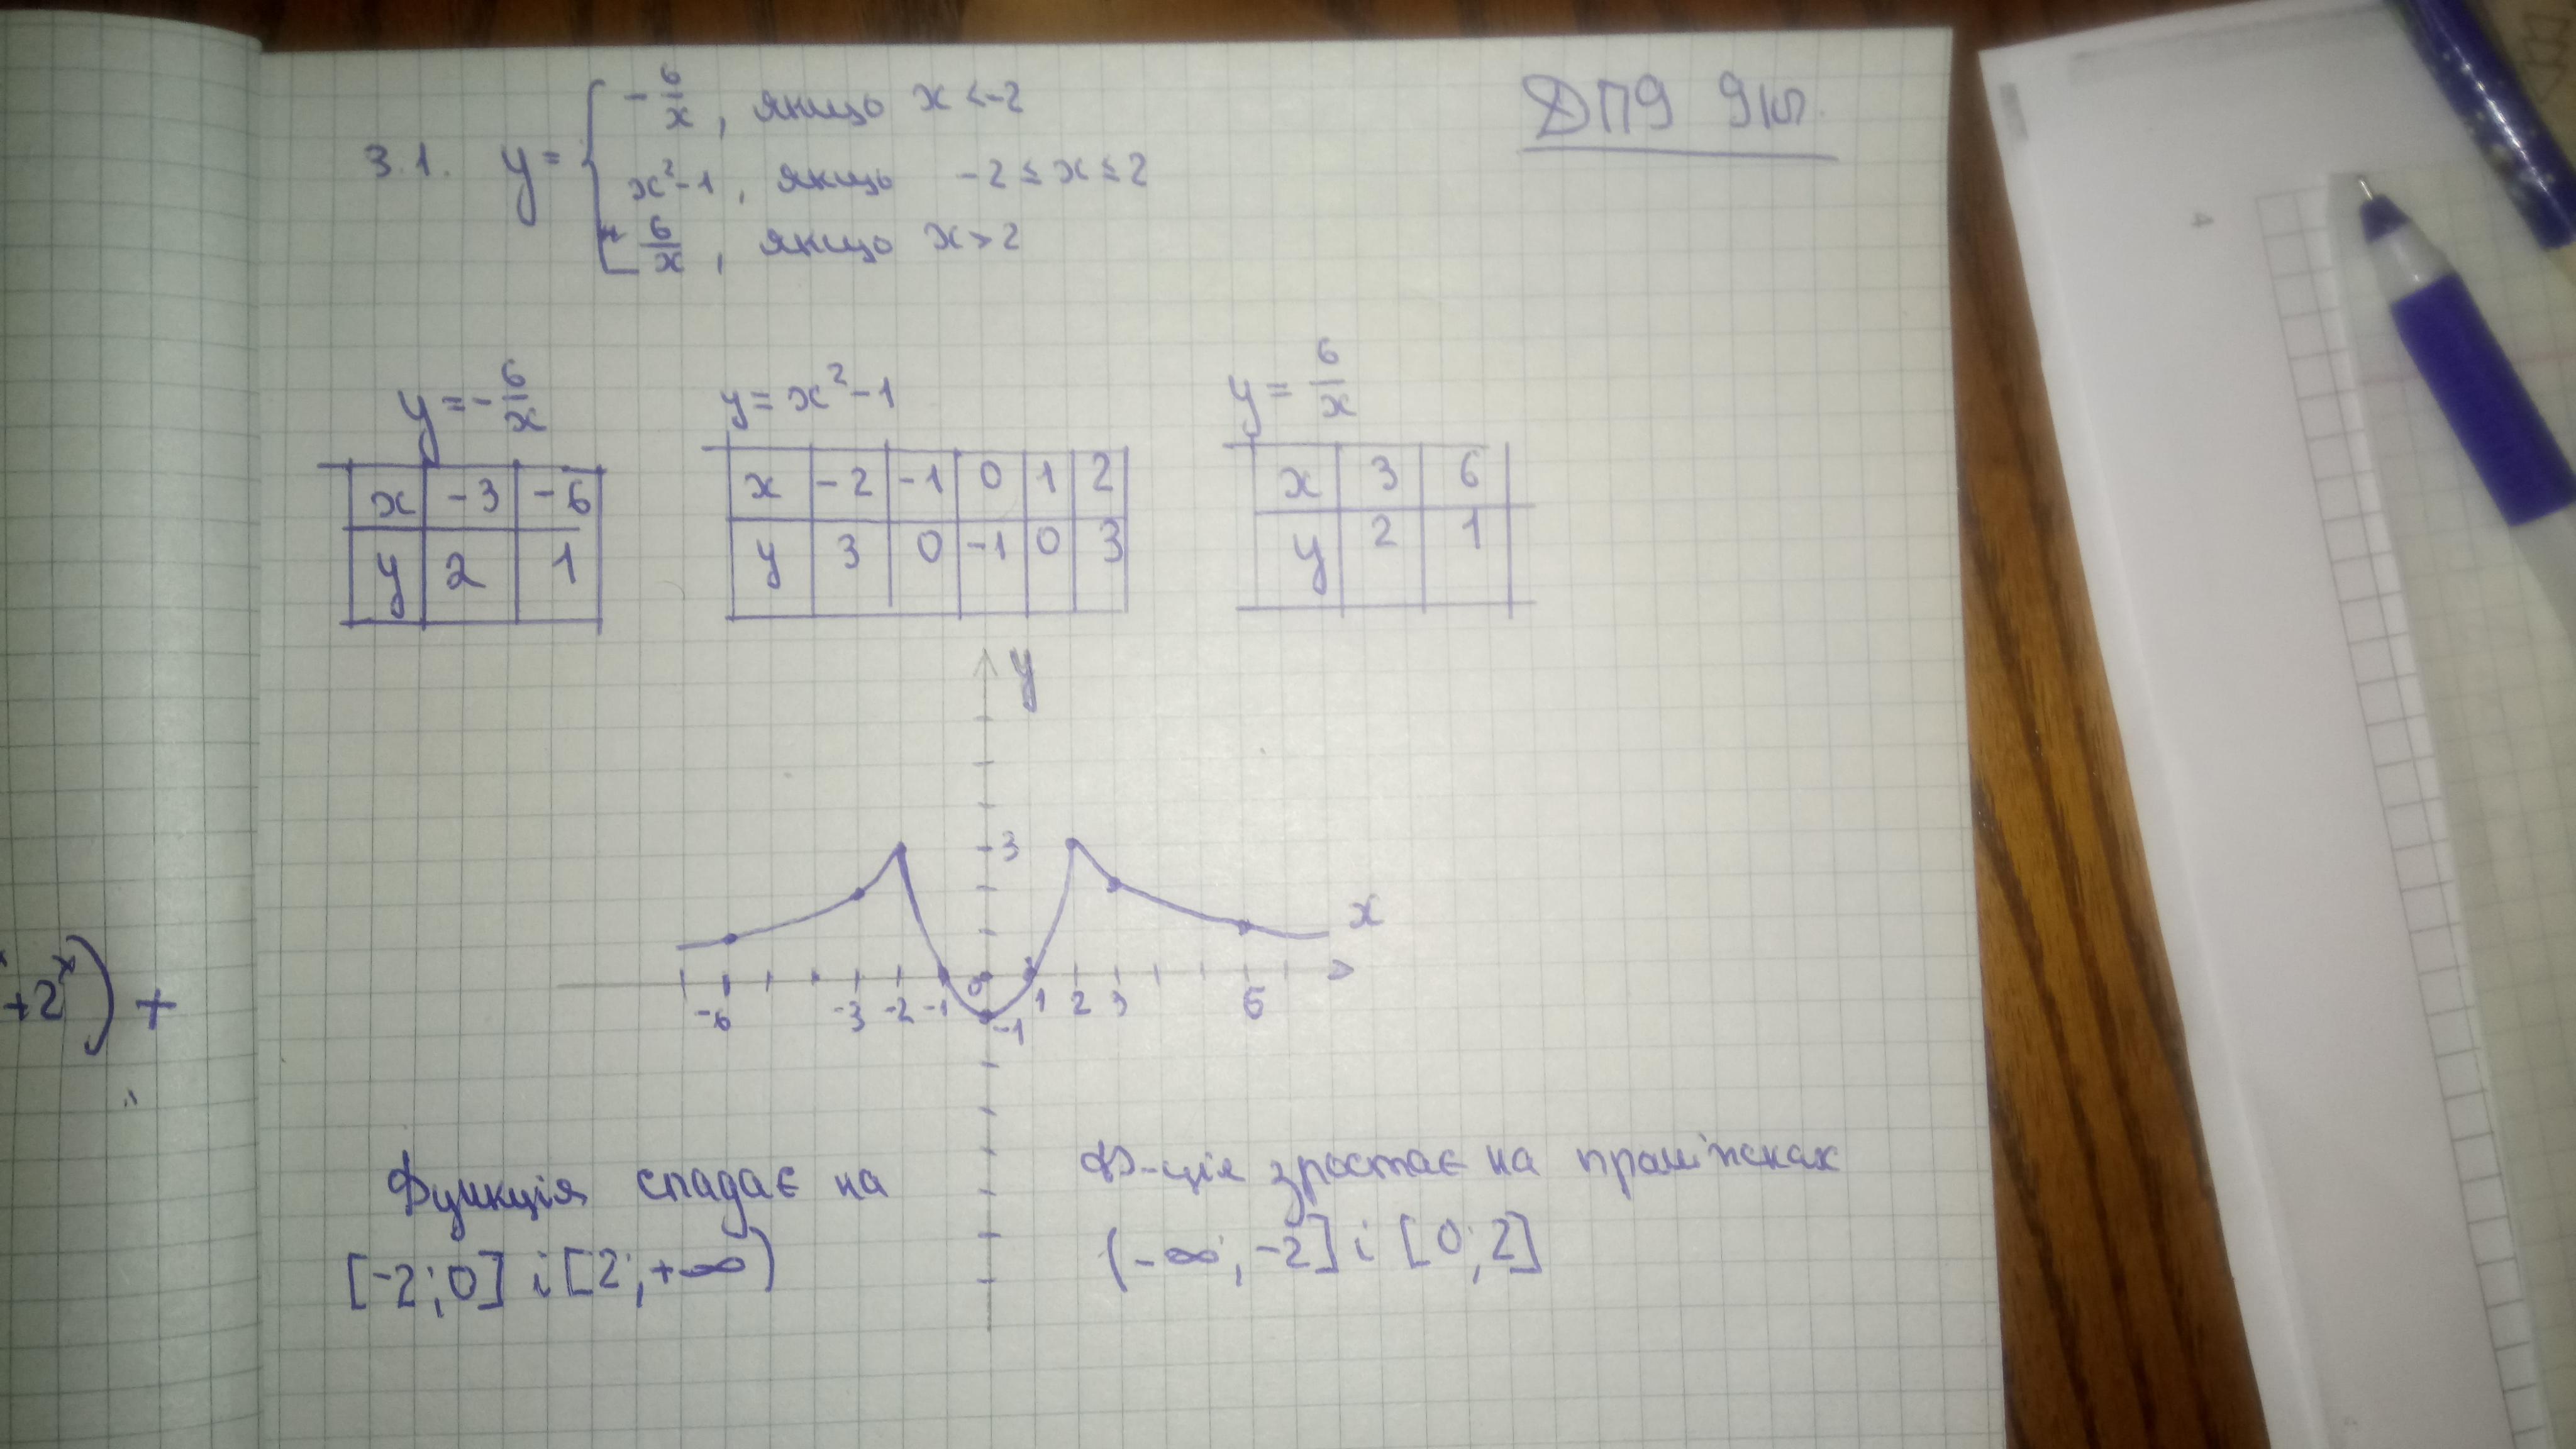 ДПА 9 кл.
3.1. y = { -6/x, якщо x < -2
x²-1, якщо -2 ≤ x ≤ 2
6/x, якщо x > 2
y = -6/x
x -3 -6
y 2 1
y = x²-1
x -2 -1 0 1 2
y 3 0 -1 0 3
y = 6/x
x 3 6
y 2 1
y
3
x
-6 -3 -2 -1 0 1 2 3 6
-1
+2ˣ) +
Функція спадає на
[-2; 0] і [2; +∞)
Ф-ція зростає на проміжках
(-∞; -2] і [0; 2]